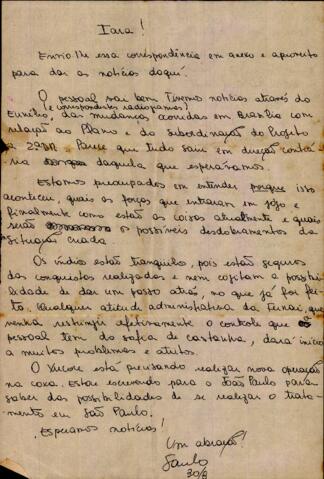 Iara!
Envio lhe essa correspondência em anexo e aproveito
para dar as notícias daqui.
O pessoal vai bem Tivemos notícias através do
(e correspondentes radiogramas)
Eunélio, das mudanças ocorridas em Brasília com
relação ao Plano e da subordinação do Projeto
a 2ª DR. Parece que tudo saiu em direção contrá
ria daquela que esperávamos.
Estamos preocupados em entender porque isso
aconteceu, quais as forças que entraram em jogo e
finalmente como estão as coisas atualmente e quais
serão os possíveis desdobramentos da
situação criada
Os índios estão tranquilos, pois estão seguros
das conquistas realizadas e nem cogitam a possibi
lidade de dar um passo atrás, no que já foi fei
to. Qualquer atitude administrativa da Funai, que
venha restringir efetivamente o controle que o
pessoal tem da safra de castanha, dará início
a muitos problemas e atritos.
O está precisando realizar nova operação
na coxa. Estou escrevendo para o João Paulo para
saber das possibilidades de se realizar o trata-
mento em São Paulo.
Esperamos notícias!
Um abraço!
Saulo
30/8